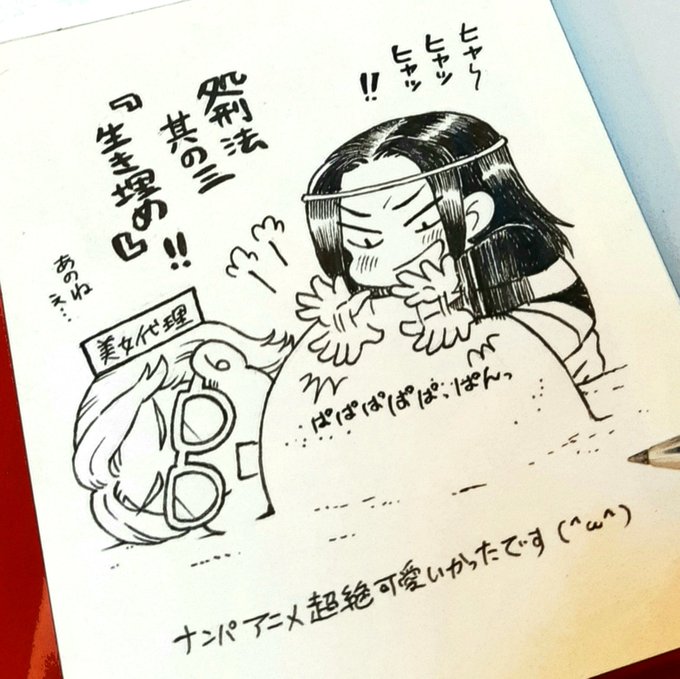 ヒャ〜
ヒャッ
ヒャッ
!!
処刑法
其の三
『生き埋め』!!
あのね
ぇ…
美女代理
ぱぱぱぱぱっぱんっ
ナンパアニメ超絶可愛いかったです(^ω^)